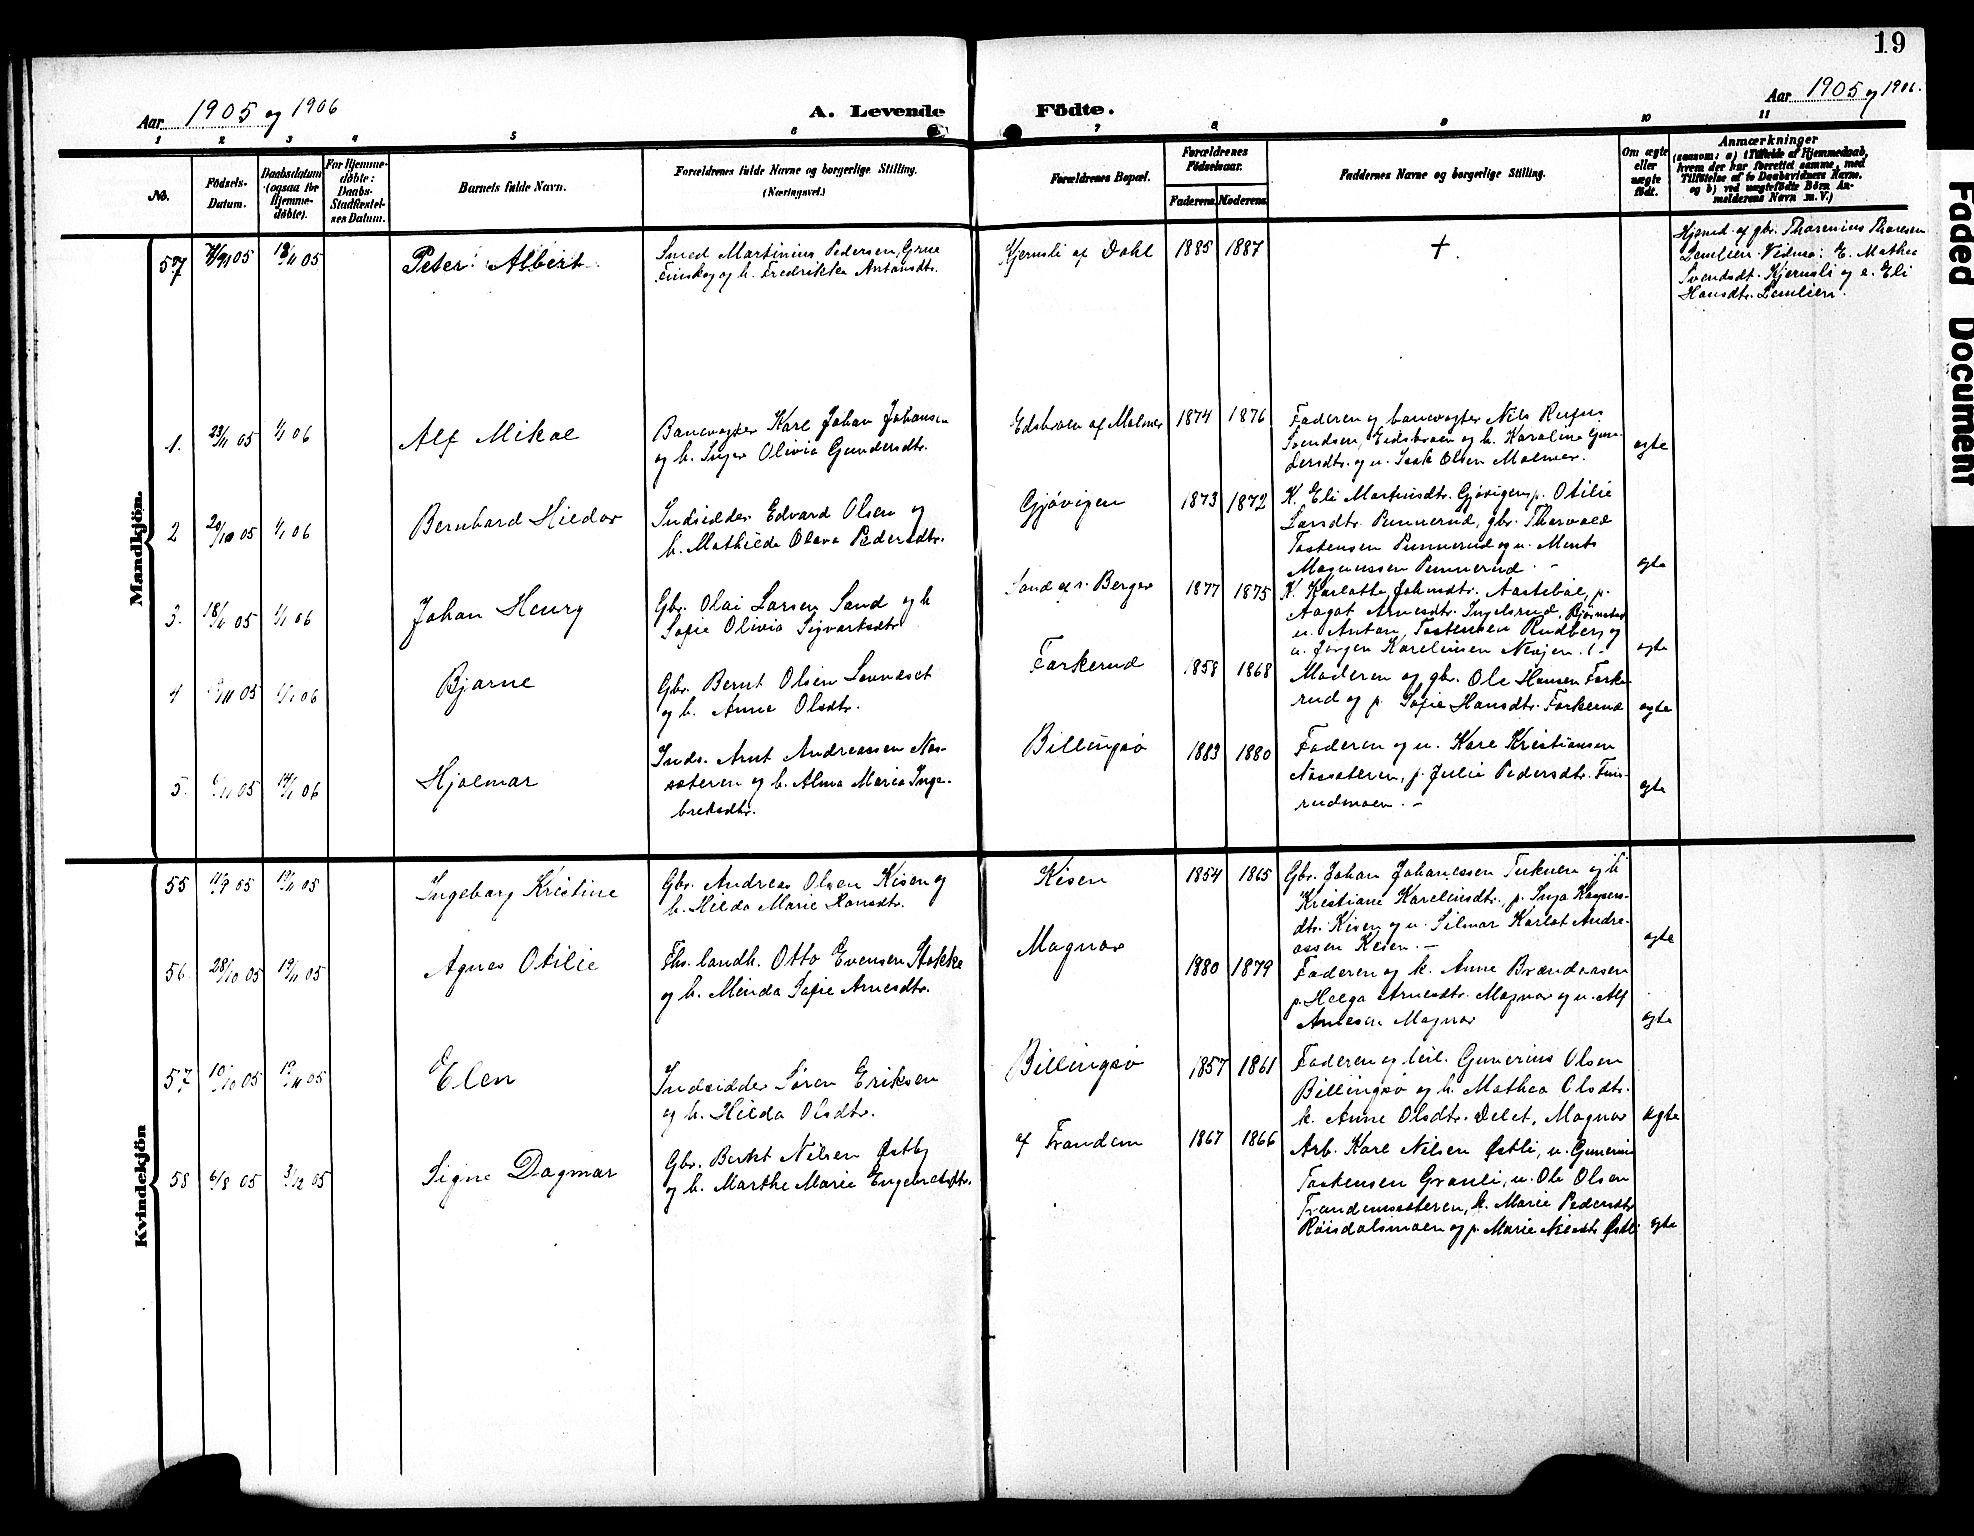 19
Aar 1905 og 1906
A. Levende
Födte.
Aar 1905 og 1906.
1 2 3 4 5 6 7 8 9 10 11
No.
Födsels-
Datum.
Daabsdatum
(ogsaa for
Hjemme-
döbte).
For Hjemme-
döbte:
Daabs-
Stadfæstel-
ses Datum.
Barnets fulde Navn.
Forældrenes fulde Navne og borgerlige Stilling.
(Næringsvei.)
Forældrenes Bopæl.
Forældrenes
Födselsaar.
Faderens.
Moderens.
Faddernes Navne og borgerlige Stilling.
Om ægte
eller
uægte
födt.
Anmærkninger
(saasom: a) i Tilfælde af Hjemmedaab,
hvem der har forrettet samme, med
Tilföielse af to Daabsvidners Navne,
og b) ved uægtefödte Börn An-
melderens Navn m. V.)
Mandkjön.
57
Peter Albert
Smed Martinius Pedersen, Grue
Finskog og h. Fredrikke Antonsdtr.
Kjernsli af Dahl
1885 1887
+
Hjemd af gbr. Thorenius Thoresen
Lemlien. Vidner: E. Mathea
Svendsdt. Kjernsli og e. Eli
Hansdtr. Lemlien.
1. 23/11 05 1/1 06
Alf Mikal
Banevogter Karl Johan Johansen
og h. Inger Olivia Gundersdtr.
Eidsbraen af Malmer
1874 1876
Faderen og banevogter Nils Rufus
Svendsen, Eidsbraen og h. Karoline Gun-
dersdtr. og u. Isak Olsen Malmer.
ægte
2 20/10 05 1/1 06
Bernhard Hildor
Indsidder Edvard Olsen og
h. Mathilde Olava Pedersdtr.
Gjövigen
1873 1872
K. Eli Martinsdtr. Gjövigen, p. Otilie
Larsdtr. Punnerud, gbr. Thorvald
Tostensen Punnerud og u. Ments
Magnussen Punnerud. -
ægte
3. 18/11 05 1/1 06
Johan Henry
Gbr. Olai Larsen Sand og h
Sofie Olivia Sigvartsdtr.
Sand af n. Berger
1877 1875
K. Karlotte Johnsdtr. Aartsböl, p.
Aagot Arnesdtr. Ingelsrud, Björnstad
u. Anton Tostensen Rudberg og
u. Jörgen Karelinsen Nexjen. -
ægte
4 /11 05 1/1 06
Bjarne
Gbr. Bernt Olsen Lövneset
og h. Anne Olsdtr.
Forkerud
1858 1868
Moderen og gbr. Ole Hansen Forke-
rud og p. Sofie Hansdtr. Forkerud
ægte
5. /11 05 14/1 06
Hjalmar
Inds. Arnt Andreassen Nor-
sæteren og h. Alma Maria Inge-
bretsdtr.
Billingsö
1883 1880
Faderen og u. Karl Kristiansen
Norsæteren, p. Julie Pedersdtr. Fins-
rudmoen. -
ægte
Kvindekjön
55 11/9 05 19/11 05
Ingeborg Kristine
Gbr. Andreas Olsen Kisen og
h. Hilda Marie Hansdtr.
Kisen
1854 1865
Gbr. Johan Johanessen Tuknen og h
Kristiane Karelinsdtr., p. Inga Kaspers-
dtr. Kisen og u. Hilmar Karlot Andre-
assen Kisen. -
ægte
56 28/10 05 19/11 05
Agnes Otilie
Fhv. landh. Otto Evensen Stokke
og h. Minda Sofie Arnesdtr.
Magnor
1880 1879
Faderen og k. Anne Brændaasen
p. Helga Arnesdtr. Magnor og u. Alf
Arnesen Magnor
ægte
57 10/10 05 19/11 05
Elen
Indsidder Sören Eriksen
og h. Hilda Olsdtr.
Billingsö
1857 1861
Faderen og leil. Gunerius Olsen
Billingsö og h. Mathea Olsdtr.
k. Anne Olsdtr. Delet, Magnor
ægte
58 6/8 05 3/12 05
Signe Dagmar
Gbr. Berket Nilsen Østby
og h. Marthe Marie Engebretsdtr.
af Trandem
1867 1866
Arb. Karl Nilsen Østli, u. Gunerius
Tostensen Granli, u. Ole Olsen
Trandemsæteren, k. Marie Pedersdtr.
Röisdalsmoen og p. Marie Nilsdtr. Østli
ægte
Faded Document